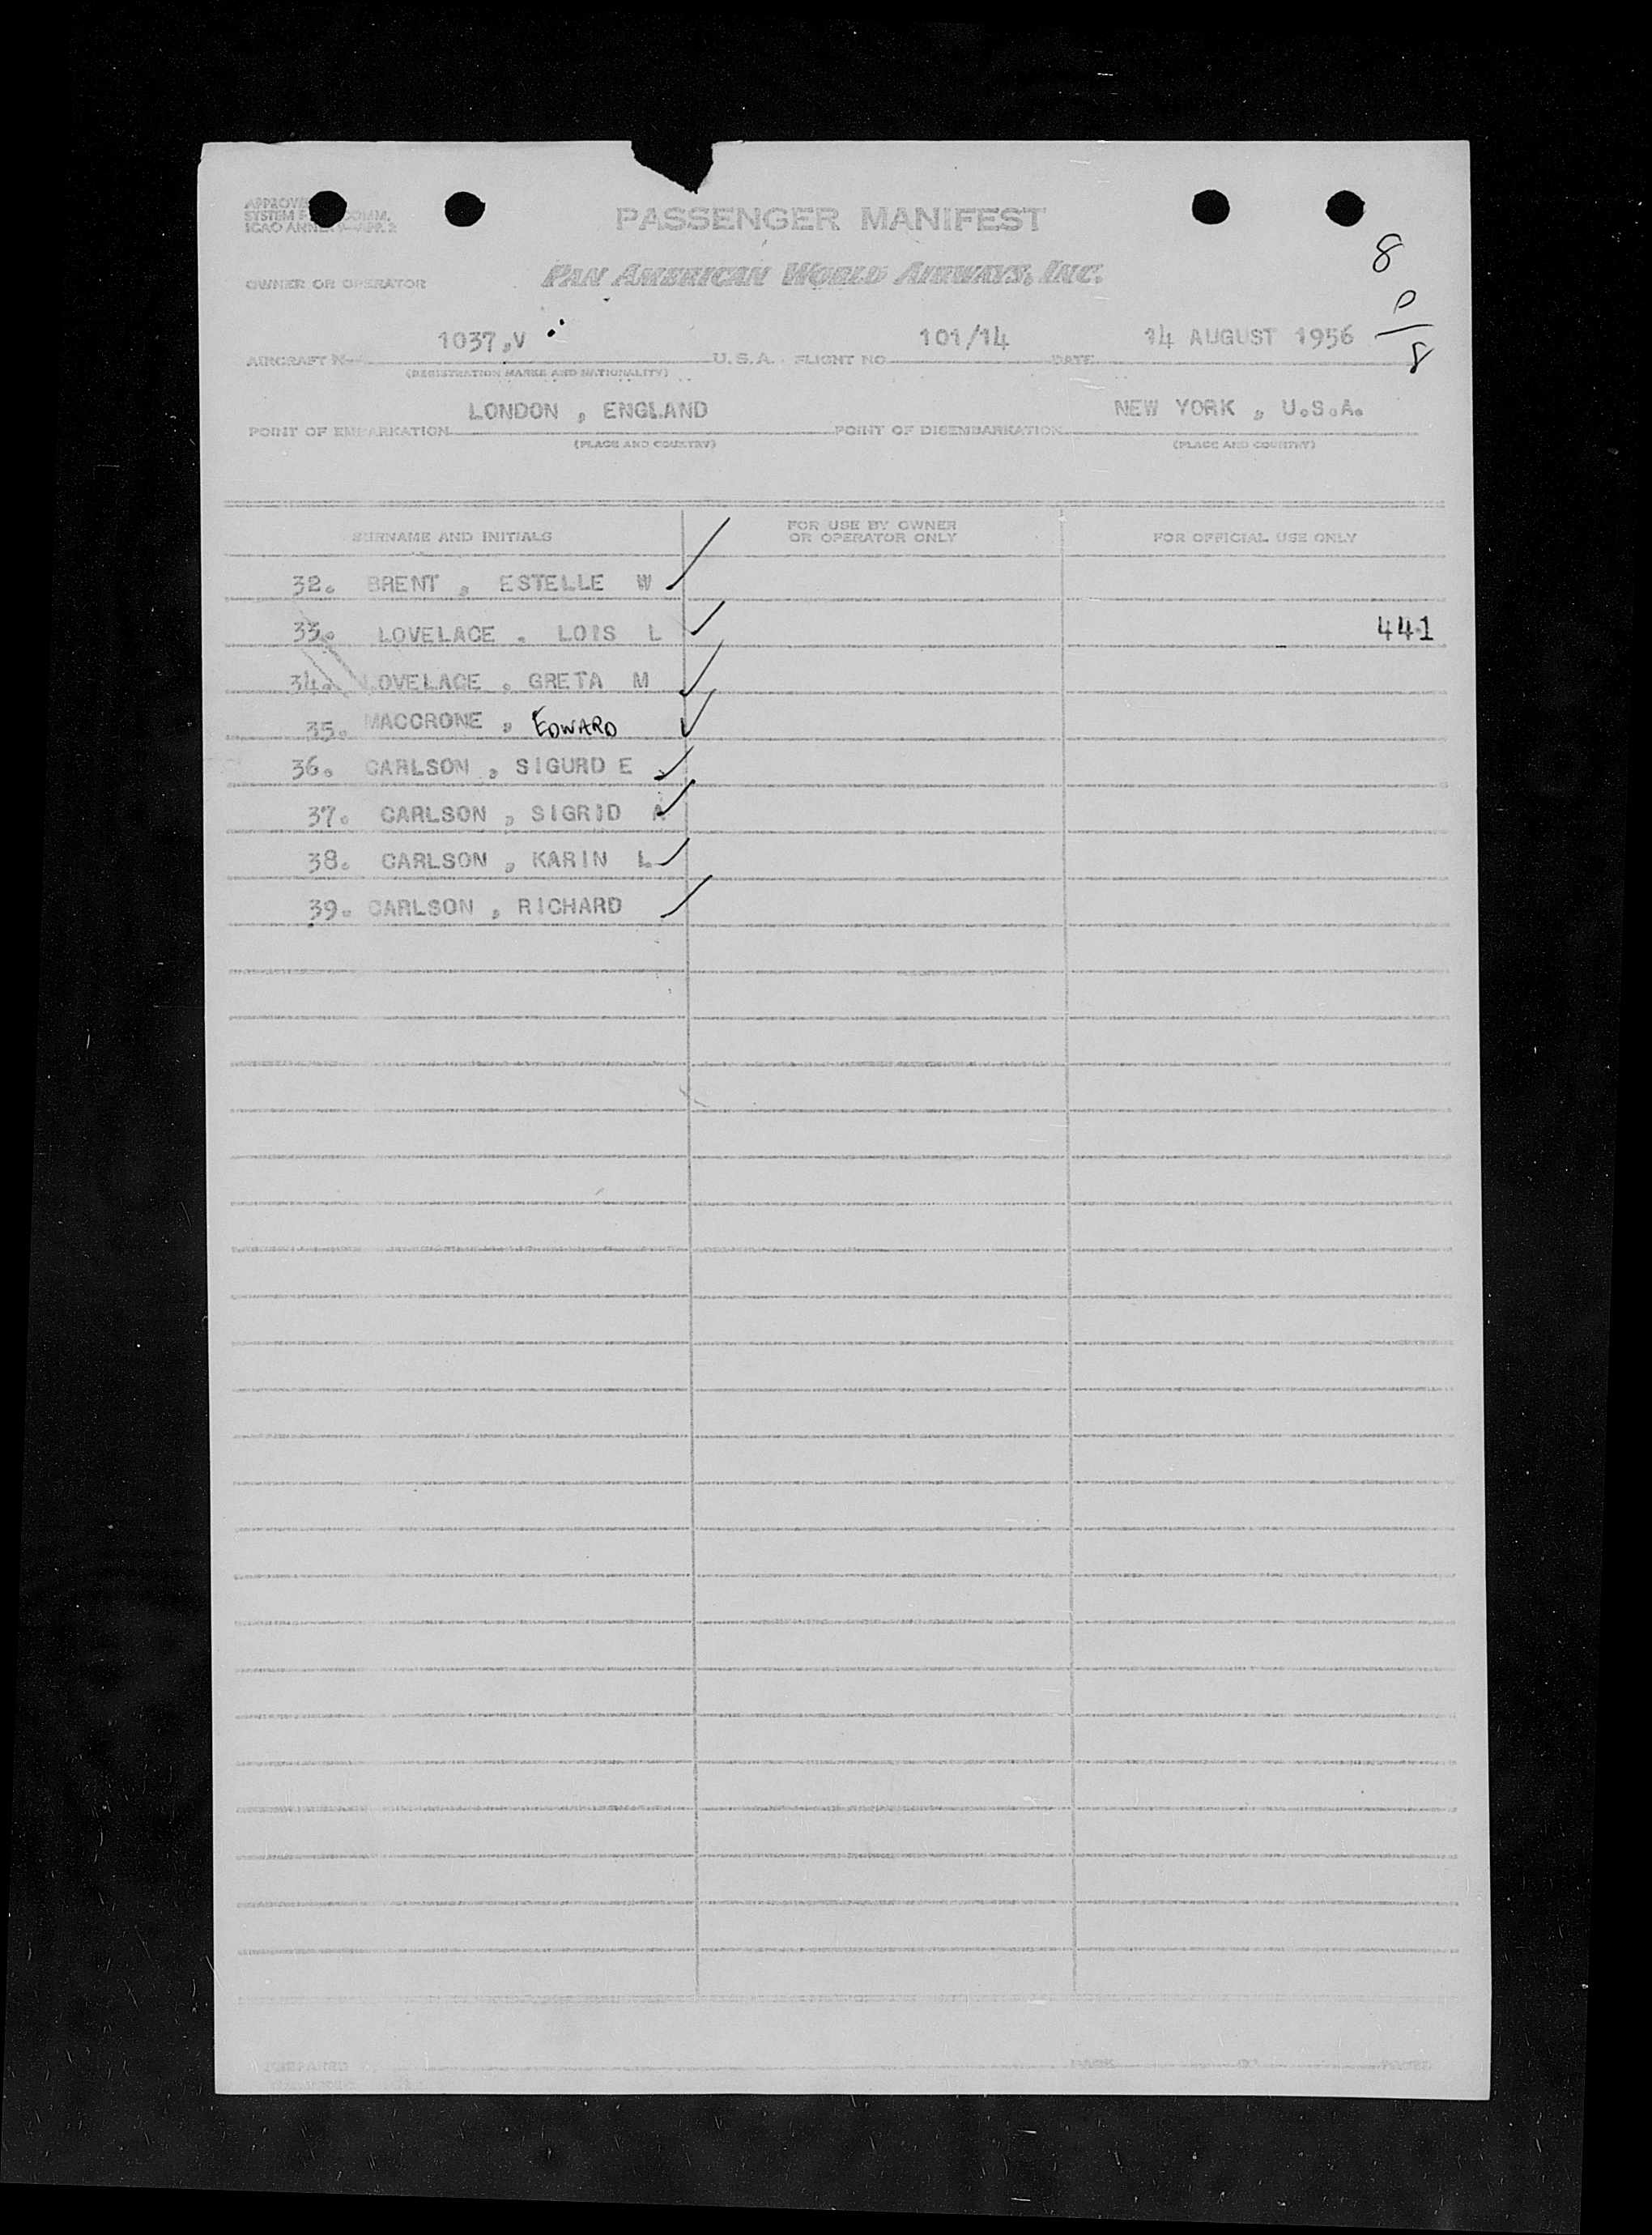 PASSENGER MANIFEST
OWNER OR OPERATOR PAN AMERICAN WORLD AIRWAYS, INC.
8
0
8
AIRCRAFT 1037,V U.S.A. FLIGHT NO 101/14 DATE 14 AUGUST 1956
(REGISTRATION MARKS AND NATIONALITY)
POINT OF EMBARKATION LONDON , ENGLAND POINT OF DISEMBARKATION NEW YORK , U.S.A.
(PLACE AND COUNTRY) (PLACE AND COUNTRY)
SURNAME AND INITIALS FOR USE BY OWNER OR OPERATOR ONLY FOR OFFICIAL USE ONLY
32. BRENT , ESTELLE W
33. LOVELACE , LOIS L 441
34. LOVELACE , GRETA M
35. MACCRONE , EDWARD
36. CARLSON , SIGURD E
37. CARLSON , SIGRID A
38. CARLSON , KARIN L
39. CARLSON , RICHARD